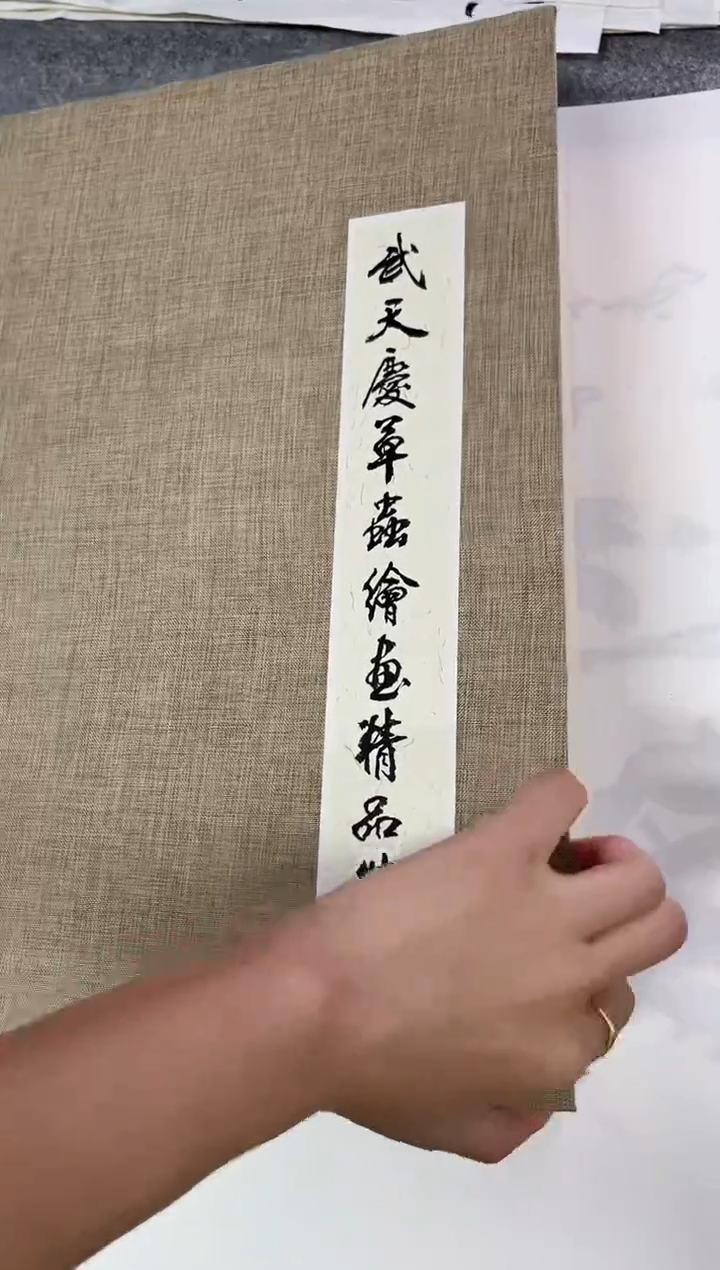 武天慶草蟲繪画精品